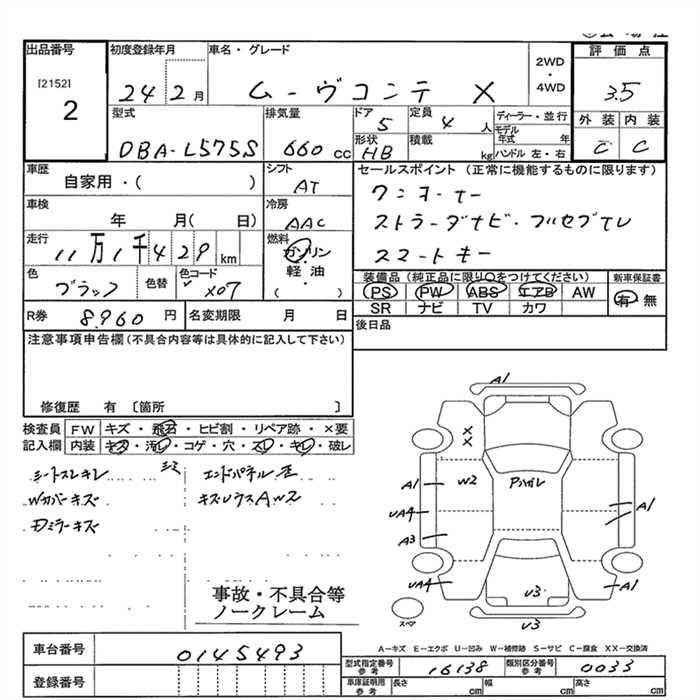 出品番号
[2152]
2
初度登録年月
24 2月
車名・グレード
ムーヴコンテ X
2WD
・
4WD
評価点
3.5
外装 内装
C C
型式
DBA-L575S
排気量
660 cc
ドア
5
形状
HB
定員
4 人
積載
kg
ディーラー・並行
モデル年式 年
ハンドル 左・右
車歴
自家用・( )
シフト
AT
セールスポイント (正常に機能するものに限ります)
ワンオーナー
ストラーダナビ・フルセブTV
スマートキー
車検
年 月( 日)
冷房
AAC
走行
11万1千429 km
燃料
ガソリン
軽油
( )
色
ブラック
色替
色コード
X07
装備品 (純正品に限り○をつけてください)
PS PW ABS エアB AW
SR ナビ TV カワ
新車保証書
有・無
R券
8,960 円
名変期限 月 日
後日品
注意事項申告欄 (不具合内容等は具体的に記入して下さい)
修復歴 有 〔箇所 〕
検査員記入欄
FW キズ・飛石・ヒビ割・リペア跡・×要
内装 キズ・汚レ・コゲ・穴・スレ・キレ・破レ
シートスレキレ
シミ
Wカバーキズ
Dミラーキズ
エンドパネル歪
キズUウスAW2
事故・不具合等
ノークレーム
A1
X
X
W2
Pハガレ
A1
UA4
A3
UA4
A1
A1
U3
U3
スペア
A-キズ E-エクボ U-凹み W-補修跡 S-サビ C-腐食 XX-交換済
車台番号
0145493
登録番号
型式指定番号 参考
16138
類別区分番号 参考
0033
車庫証明用 参考
長さ cm
幅 cm
高さ cm